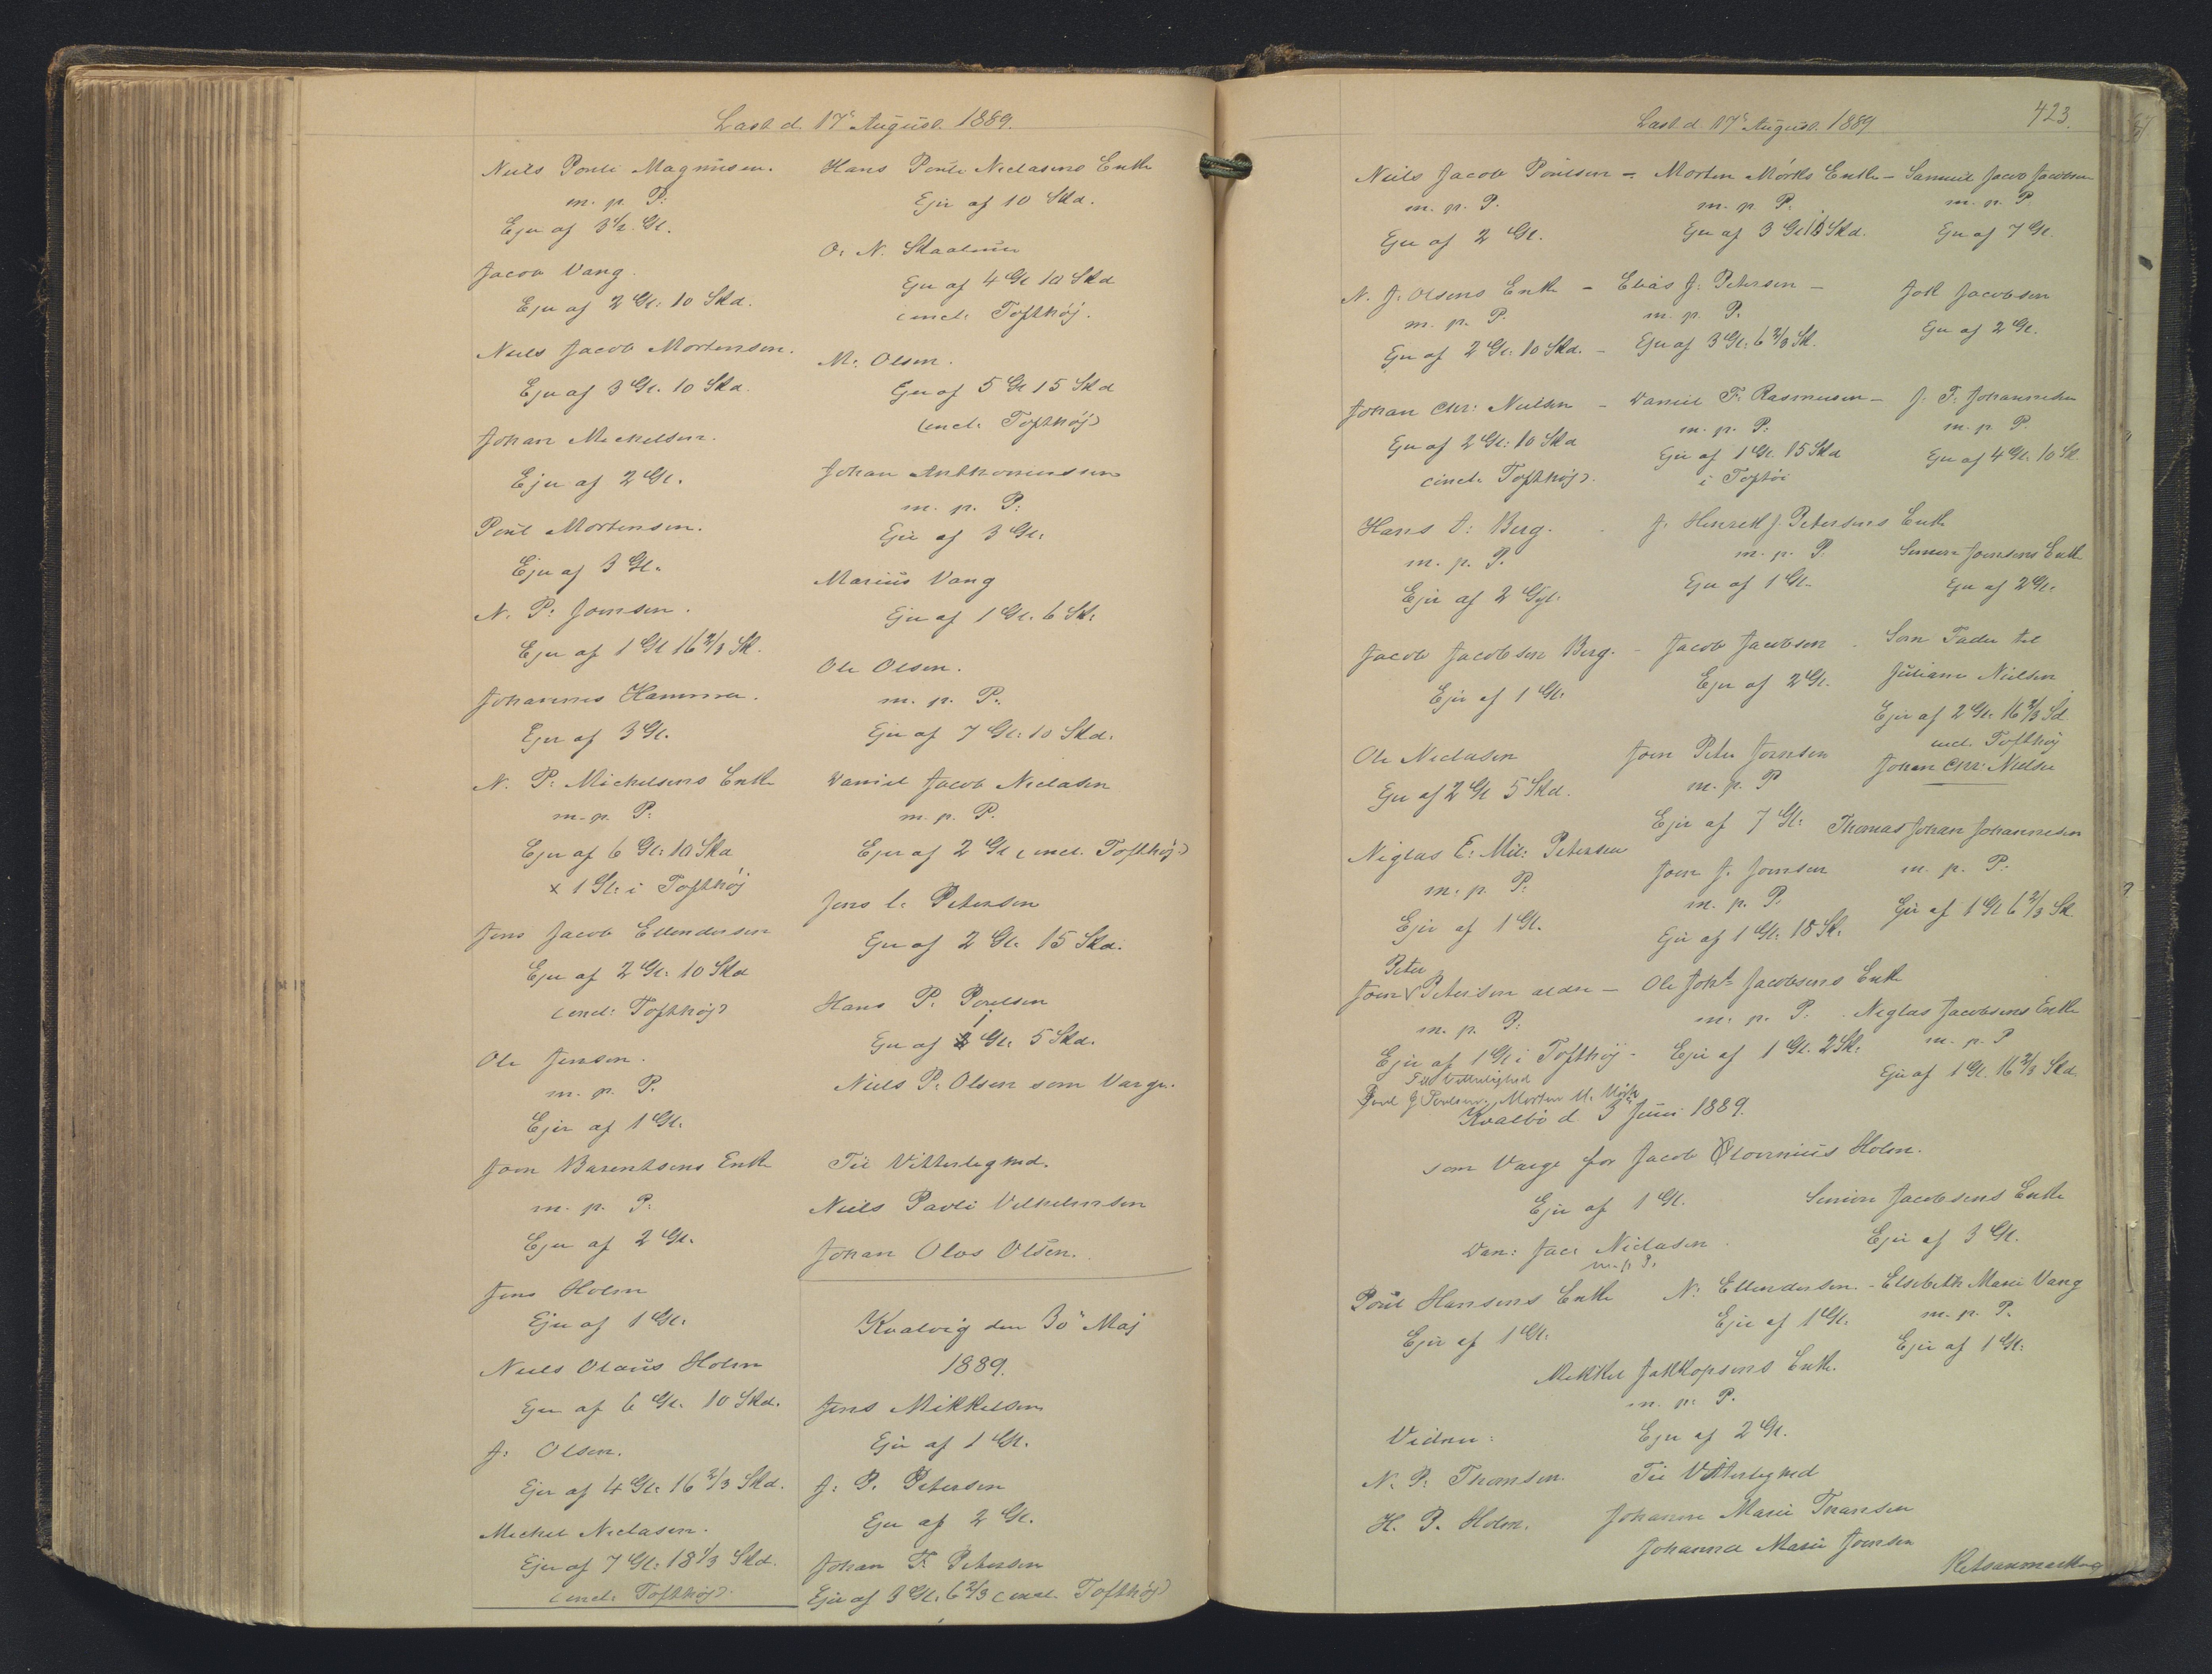 Læst d. 17' August. 1889.
Niels Pouli Magnusen.
m. p. P.
Ejer af 3½ Gl.
Jacob Vang.
Ejer af 2 Gl: 10 Skd.
Niels Jacob Mortensen.
Ejer af 3 Gl. 10 Skd.
Johan Michelsen.
Ejer af 2 Gl.
Poul Mortensen.
Ejer af 3 Gl.
N. P: Joensen.
Ejer af 1 Gl 16 2/3 Sk.
Johannes Hammer.
Ejer af 3 Gl.
N. P: Michelsens Enke
m. p. P:
Ejer af 6 Gl: 10 Skd
x 1 Gl: i Tofthöj
Jens Jacob Ellendersen
Ejer af 2 Gl: 10 Skd
(incl: Tofthöj)
Ole Jensen.
m. p. P.
Ejer af 1 Gl.
Joen Barentsens Enke
m. p. P.
Ejer af 2 Gl.
Jens Holm
Ejer af 1 Gl.
Niels Olaus Holm
Ejer af 6 Gl. 10 Skd.
J: Olsen.
Ejer af 4 Gl: 16 2/3 Skd.
Michel Niclasen.
Ejer af 7 Gl: 18 1/3 Skd.
(incl: Tofthöj)
Hans Pouli Niclasens Enke
Ejer af 10 Skd.
O. N. Skaalum
Ejer af 4 Gl 10 Skd
(incl. Tofthöj.
M. Olsen.
Ejer af 5 Gl 15 Skd
(incl. Tofthöj)
Johan Anthoniussen
m. p. P:
Ejer af 3 Gl:
Marius Vang
Ejer af 1 Gl. 6 Sk.
Ole Olsen.
m. p. P.
Ejer af 7 Gl: 10 Skd.
Daniel Jacob Niclasen
m. p. P.
Ejer af 2 Gl (incl. Tofthöj)
Jens l. Petersen
Ejer af 2 Gl. 15 Skd.
Hans P. Poulsen
1
Ejer af 2 Gl. 5 Skd.
Niels P. Olsen som Værge.
Til Vitterlighed.
Niels Pavli Vilhelmsen
Johan Olos Olsen.
Kvalvig den 30' Maj
1889.
Jens Mikkelsen
Ejer af 1 Gl.
J. P. Petersen
Ejer af 2 Gl.
Johan F. Petersen
Ejer af 3 Gl. 6 2/3 (incl. Tofthöj)
Læst d. 17' August. 1889
423.
Niels Jacob Poulsen - Morten Mörks Enke - Samuel Jacob Jacobsen
m. p. P. m. p. P. m. p. P
Ejer af 2 Gl. Ejer af 3 Gl 13 Skd. Ejer af 7 Gl.
N. J. Olsens Enke - Elias J. Petersen - Joh Jacobsen
m. p. P. m. p. P. Ejer af 2 Gl.
Ejer af 2 Gl: 10 Skd. - Ejer af 3 Gl: 6 2/3 Sk.
Johan Chr: Nielsen - Daniel F. Rasmusen - J. F. Johannesen
m. p. P. m. p. P.
Ejer af 2 Gl: 10 Skd Ejer af 1 Gl. 15 Skd Ejer af 4 Gl. 10 Sk.
(incl. Tofthöj). i Toftöi
Hans O: Berg. J. Henrik J. Petersens Enke
m. p. P. m. p. P. Simon Joensens Enke
Ejer af 2 Gyl. Ejer af 1 Gl. Ejer af 2 Gl.
Jacob Jacobsen Berg. - Jacob Jacobsen Som Fader til
Ejer af 1 Gl. Ejer af 2 Gl. Juliane Nielsen
Ejer af 2 Gl. 16 2/3 Sd
incl. Tofthöj
Ole Niclasen Joen Peter Joensen Johan Chr. Nielsen
Ejer af 2 Gl 5 Skd. m. p. P
Ejer af 7 Gl: Thomas Johan Johannesen
Niglas E: Mil: Petersen Joen J. Joensen m. p. P:
m. p. P: m. p. P.
Ejer af 1 Gl. Ejer af 1 Gl: 15 Sk. Ejer af 1 Gl 6 2/3 Sk
Peter
Joen Petersen ælder - Ole Joh. Jacobsens Enke
m. p. P: m. p. P. Niglas Jacobsens Enke
Ejer af 1 Gl i Tofthöj - Ejer af 1 Gl. 2 Sk: m. p. P
Til Vitterlighed Ejer af 1 Gl. 16 2/3 Skd.
Poul J Poulsen, Morten M. Mörk
Kvalbö d. 3' Juni 1889.
som Værge for Jacob Holm.
Ejer af 1 Gl. Simon Jacobsens Enke
Dan: Jac. Niclasen Ejer af 3 Gl.
m. p. P.
Poul Hansens Enke N: Ellendersen. - Elsebeth Marie Vang
Ejer af 1 Gl. Ejer af 1 Gl. m. p. P.
Ejer af 1 Gl:
Mikkel Jakkopsens Enke.
m. p. P.
Vidner: Ejer af 2 Gl.
N. P. Thomsen. Til Vitterlighed
H. P. Holm. Johanne Marie Thomsen
Johanna Marie Joensen
Retsanmærkning